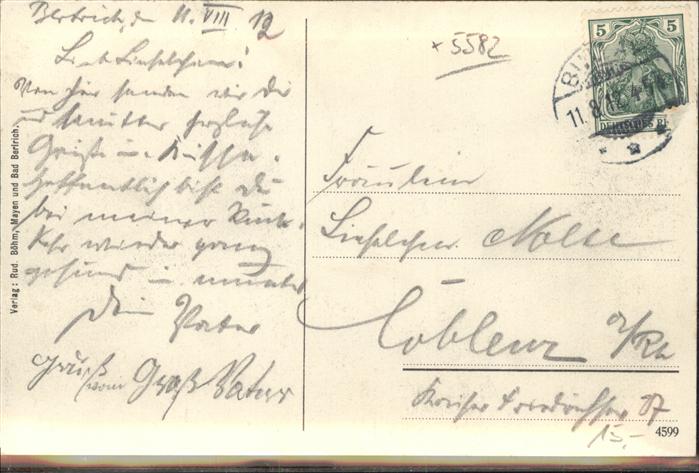 Bertrich, den 11. VIII. 12
Lieb Lieselchen!
Von hier senden wir Dir
u. Mutter herzliche
Grüße u. Küsse.
Hoffentlich bist Du
bei meiner Rück-
kehr wieder ganz
gesund u. munter
Dein Vater
Gruß vom Groß Vater
× 5582
5
5
DEUTSCHES
11.8.12. 4-5
Fräulein
Lieselchen Nolte
Coblenz a/Rh
Kaiser Friedrichstr 87
15,-
4599
Verlag: Rud. Böhm, Mayen und Bad Bertrich.